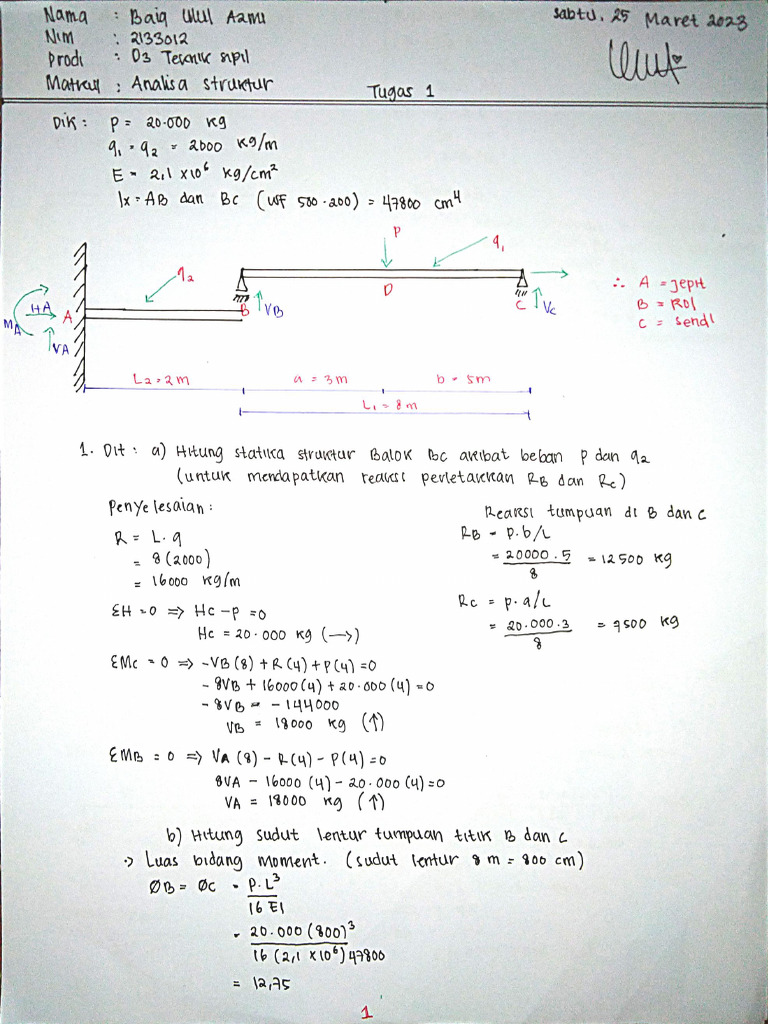 Nama : Baiq Ulul Azmi
Nim : 2133012
Prodi : D3 Teknik sipil
Matkul : Analisa struktur
Sabtu, 25 Maret 2023
Tugas 1
Dik : P = 20.000 kg
q₁ = q₂ = 2000 kg/m
E = 2,1 x10⁶ kg/cm²
Ix = AB dan BC (WF 500.200) = 47800 cm⁴
P
q₁
q₂
D
HA
A
MA
VA
B
VB
C
Vc
∴ A = jepit
B = Rol
C = sendi
L₂ = 2 m
a = 3 m
b = 5 m
L₁ = 8 m
1. Dit : a) Hitung statika struktur Balok BC akibat beban P dan q₂
(untuk mendapatkan reaksi perletakkan RB dan Rc)
Penyelesaian :
R = L . q
= 8 (2000)
= 16000 kg/m
ΣH = 0 => Hc - P = 0
Hc = 20.000 kg (→)
ΣMc = 0 => -VB (8) + R (4) + P (4) = 0
- 8VB + 16000 (4) + 20.000 (4) = 0
- 8VB = - 144000
VB = 18000 kg (↑)
ΣMB = 0 => VA (8) - R (4) - P (4) = 0
8VA - 16000 (4) - 20.000 (4) = 0
VA = 18000 kg (↑)
Reaksi tumpuan di B dan C
RB = P.b/L
= 20000 . 5 / 8 = 12500 kg
Rc = P.a/L
= 20.000 . 3 / 8 = 7500 kg
b) Hitung sudut lentur tumpuan titik B dan C
-> Luas bidang moment. (sudut lentur 8 m = 800 cm)
ØB = ØC = P.L³ / 16 EI
= 20.000 (800)³ / 16 (2,1 x10⁶) 47800
= 12,75
1